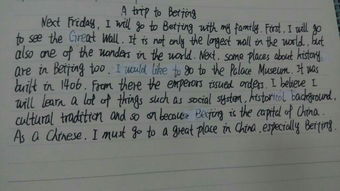 A trip to Beijing
Next Friday, I will go to Beijing with my family. First, I will go
to see the Great Wall. It is not only the longest wall in the world, but
also one of the wonders in the world. Next, some places about history
are in Beijing too. I would like to go to the Palace Museum. It was
built in 1406. From there the emperors issued orders. I believe I
will learn a lot of things such as social system, historical background,
cultural tradition and so on because Beijing is the capital of China.
As a Chinese, I must go to a great place in China, especially Beijing.